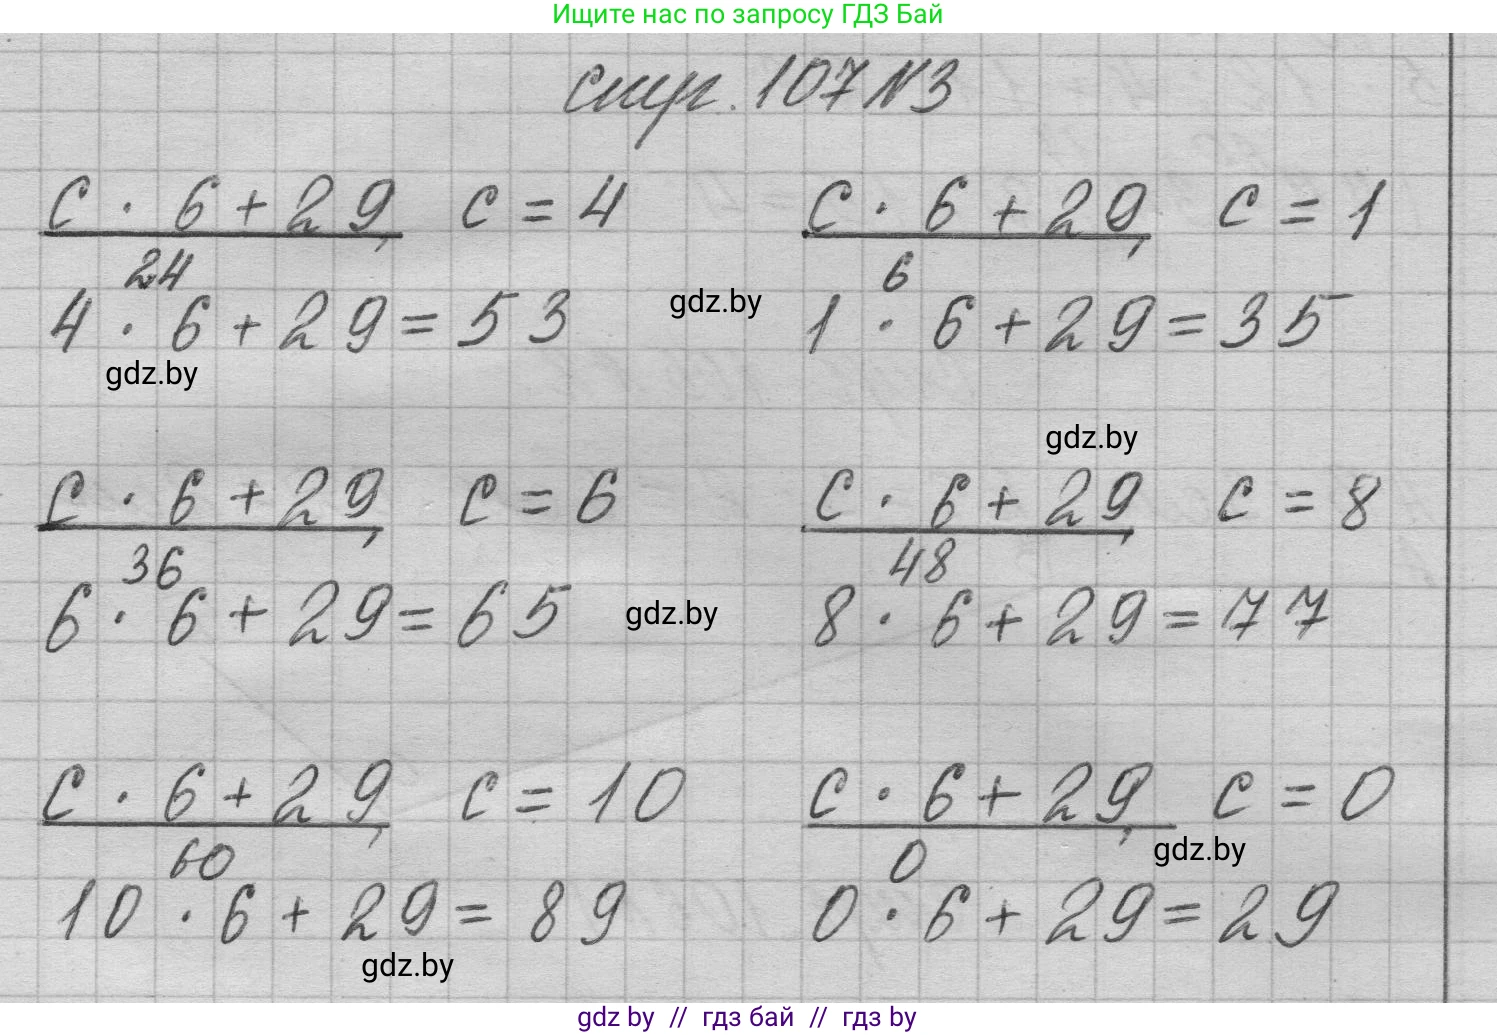 Ищите нас по запросу ГДЗ Бай
стр. 107 №3
с · 6 + 29, с = 4 с · 6 + 29, с = 1
24 6
4 · 6 + 29 = 53 gdz.by 1 · 6 + 29 = 35
gdz.by
gdz.by
с · 6 + 29, с = 6 с · 6 + 29, с = 8
36 48
6 · 6 + 29 = 65 gdz.by 8 · 6 + 29 = 77
с · 6 + 29, с = 10 с · 6 + 29, с = 0
60 0 gdz.by
10 · 6 + 29 = 89 0 · 6 + 29 = 29
gdz.by
gdz by // гдз бай // гдз by